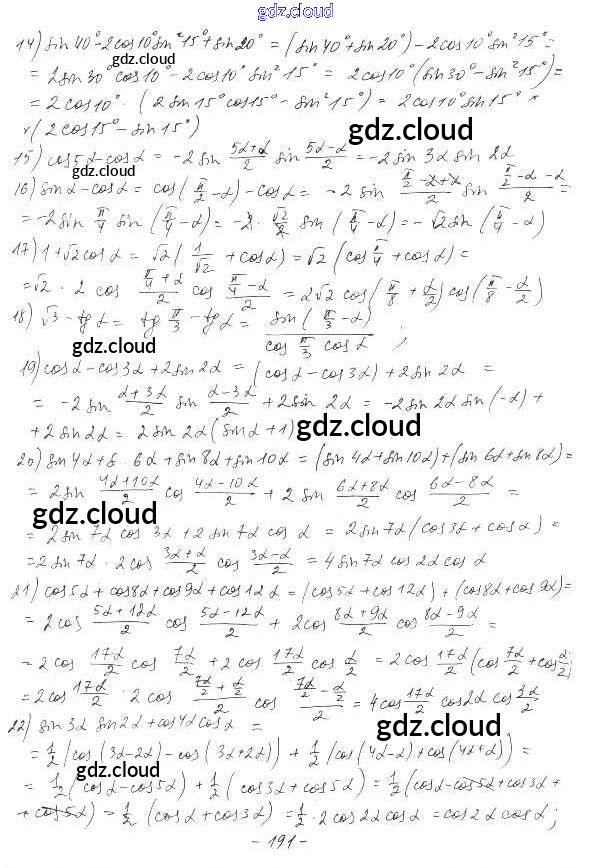 gdz.cloud
14) sin 40° - 2cos10° sin²15° + sin 20° = (sin 40° + sin 20°) - 2cos10° sin²15° =
gdz.cloud
= 2sin 30° cos10° - 2cos10° sin²15° = 2cos10° (sin 30° - sin²15°) =
= 2cos10° · (2sin15° cos15° - sin²15°) = 2cos10° sin15° ×
× (2cos15° - sin15°)
gdz.cloud
15) cos5α - cosα = -2sin (5α+α)/2 sin (5α-α)/2 = -2sin 3α sin 2α
gdz.cloud
16) sinα - cosα = cos(π/2 - α) - cosα = -2sin (π/2 - α + α)/2 sin (π/2 - α - α)/2 =
= -2sin π/4 sin (π/4 - α) = -2 · √2/2 sin (π/4 - α) = -√2 sin (π/4 - α)
gdz.cloud
17) 1 + √2 cosα = √2 (1/√2 + cosα) = √2 (cos π/4 + cosα) =
= √2 · 2 cos (π/4 + α)/2 cos (π/4 - α)/2 = 2√2 cos(π/8 + α/2) cos(π/8 - α/2)
18) √3 - tgα = tg π/3 - tgα = sin(π/3 - α)/(cos π/3 cosα) ;
gdz.cloud
19) cosα - cos3α + 2sin2α = (cosα - cos3α) + 2sin2α =
gdz.cloud
= -2sin (α+3α)/2 sin (α-3α)/2 + 2sin2α = -2sin2α sin(-α) +
+ 2sin2α = 2sin2α (sinα + 1)
gdz.cloud
20) sin4α + s 6α + sin8α + sin10α = (sin4α + sin10α) + (sin6α + sin8α) =
gdz.cloud
= 2sin (4α+10α)/2 cos (4α-10α)/2 + 2sin (6α+8α)/2 cos (6α-8α)/2 =
gdz.cloud
= 2sin7α cos3α + 2sin7α cosα = 2sin7α (cos3α + cosα) =
= 2sin7α · 2cos (3α+α)/2 cos (3α-α)/2 = 4sin7α cos2α cosα
gdz.cloud
21) cos5α + cos8α + cos9α + cos12α = (cos5α + cos12α) + (cos8α + cos9α) =
= 2cos (5α+12α)/2 cos (5α-12α)/2 + 2cos (8α+9α)/2 cos (8α-9α)/2 =
= 2cos 17α/2 cos 7α/2 + 2cos 17α/2 cos α/2 = 2cos 17α/2 (cos 7α/2 + cos α/2)
gdz.cloud
= 2cos 17α/2 · 2cos (7α/2 + α/2)/2 cos (7α/2 - α/2)/2 = 4cos 17α/2 cos2α cos 3α/2
gdz.cloud
22) sin3α sin2α + cos4α cosα =
= 1/2 (cos(3α-2α) - cos(3α+2α)) + 1/2 (cos(4α-α) + cos(4α+α)) =
gdz.cloud
= 1/2 (cosα - cos5α) + 1/2 (cos3α + cos5α) = 1/2 (cosα - cos5α + cos3α +
+ cos5α) = 1/2 (cosα + cos3α) = 1/2 · 2cos2α cosα = cos2α cosα ;
- 191 -
gdz.cloud